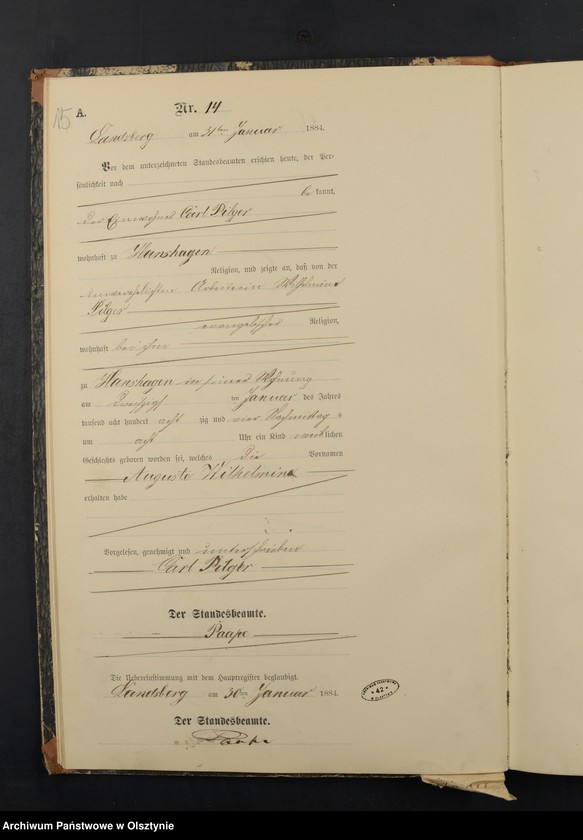 15
A.
Nr. 14
Landsberg am 31ten Januar 1884.
Vor dem unterzeichneten Standesbeamten erschien heute, der Per-
sönlichkeit nach
be kannt,
der Einwohner Carl Pilger
wohnhaft zu Hanshagen
Religion, und zeigte an, daß von der
unverehelichten Arbeiterin Wilhelmine
Pilger
evangelischer Religion,
wohnhaft bei ihm
zu Hanshagen in seiner Wohnung
am dreißigsten Januar des Jahres
tausend acht hundert acht zig und vier Nachmittag s
um acht Uhr ein Kind weiblichen
Geschlechts geboren worden sei, welches die Vornamen
Auguste Wilhelmine
erhalten habe
Vorgelesen, genehmigt und unterschrieben
Carl Pilger
Der Standesbeamte.
Paape
Die Uebereinstimmung mit dem Hauptregister beglaubigt.
Landsberg am Januar 1884.
Der Standesbeamte.
Paape
42
Archiwum Państwowe w Olsztynie